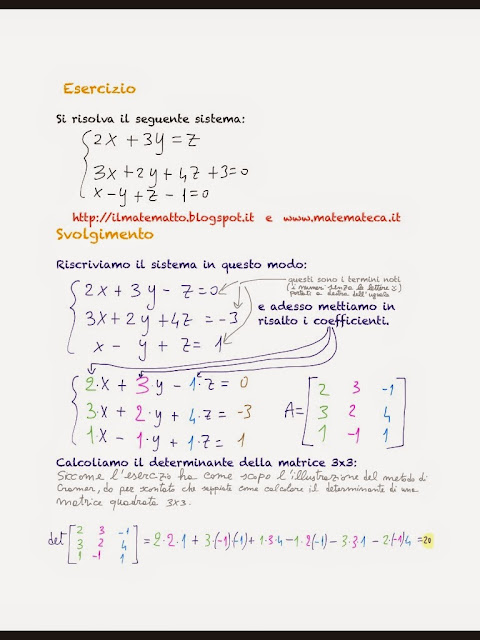 Esercizio
Si risolva il seguente sistema:
2x + 3y = z
3x + 2y + 4z + 3 = 0
x - y + z - 1 = 0
http://ilmatematto.blogspot.it e www.matemateca.it
Svolgimento
Riscriviamo il sistema in questo modo:
questi sono i termini noti
(i numeri senza le lettere)
portati a destra dell'uguale
2x + 3y - z = 0
3x + 2y + 4z = -3
x - y + z = 1
e adesso mettiamo in
risalto i coefficienti.
2·x + 3·y - 1·z = 0
3·x + 2·y + 4·z = -3
1·x - 1·y + 1·z = 1
A = [2 3 -1
3 2 4
1 -1 1]
Calcoliamo il determinante della matrice 3x3:
Siccome l'esercizio ha come scopo l'illustrazione del metodo di
Cramer, do per scontato che sappiate come calcolare il determinante di una
matrice quadrata 3x3.
det [2 3 -1
3 2 4
1 -1 1] = 2·2·1 + 3·(-1)(-1) + 1·3·4 - 1·2(-1) - 3·3·1 - 2·(-1)4 = 20